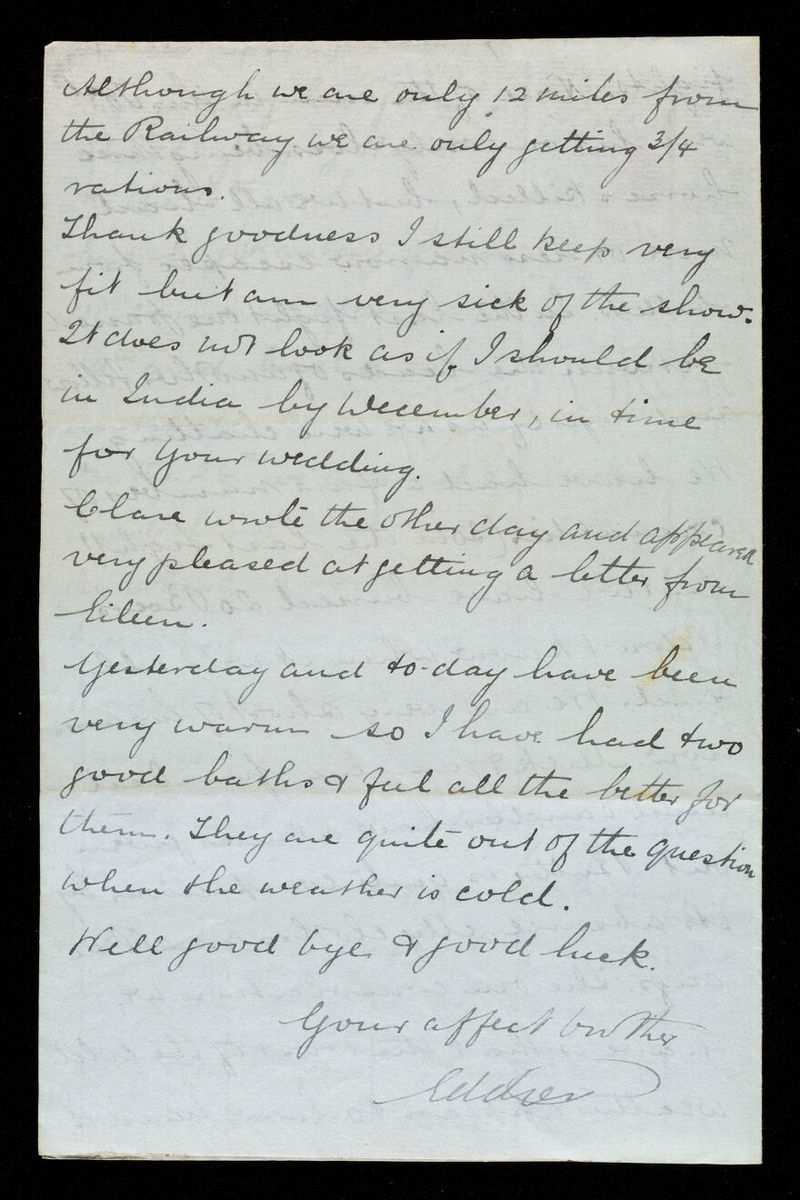 Although we are only 12 miles from
the Railway we are only getting 3/4
rations.
Thank goodness I still keep very
fit but am very sick of the show.
It does not look as if I should be
in India by December, in time
for your wedding.
Clare wrote the other day and appeared
very pleased at getting a letter from
Eileen.
Yesterday and to-day have been
very warm so I have had two
good baths & feel all the better for
them. They are quite out of the question
when the weather is cold.
Well good bye & good luck.
Your affect brother